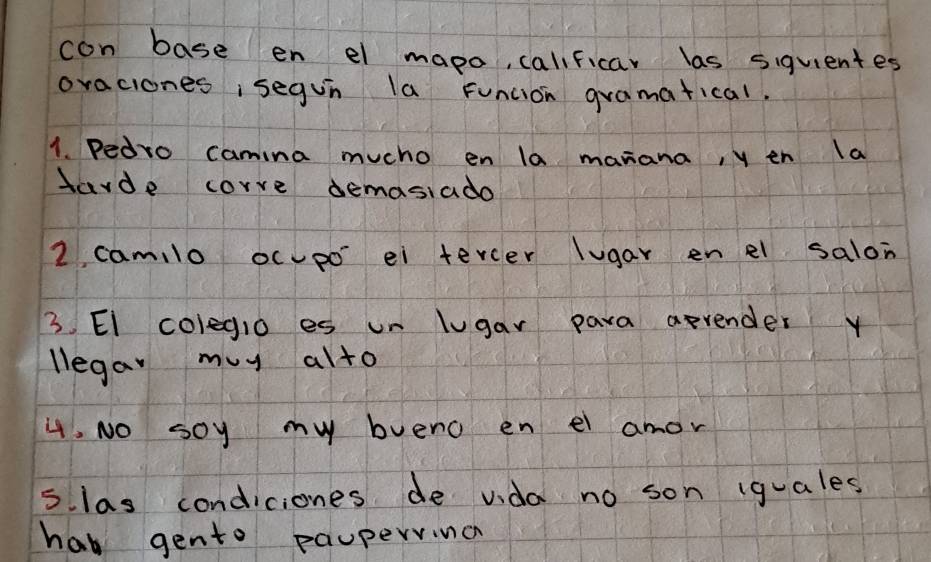 con base en el mapa, calificar las siguientes
oraciones, según la función gramatical.
1. Pedro camina mucho en la mañana, y en la
tarde corre demasiado
2. camilo ocupó el tercer lugar en el salón
3. El colegio es un lugar para aprender y
llegar muy alto
4. No soy muy bueno en el amor
5. las condiciones de vida no son iguales
hay gente pauperrina